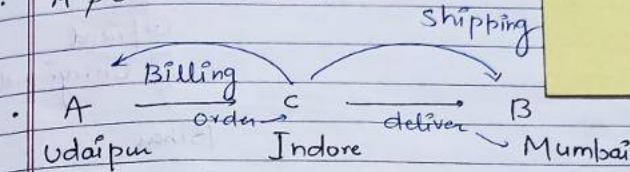 Shipping
Billing
A C B
order deliver
Udaipur Indore Mumbai